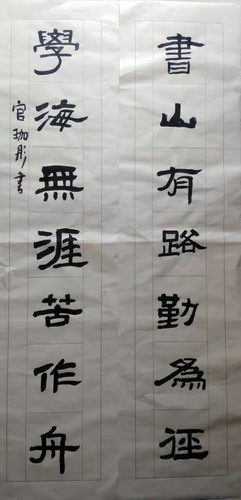 書山有路勤為徑
學海無涯苦作舟
官珈彤書